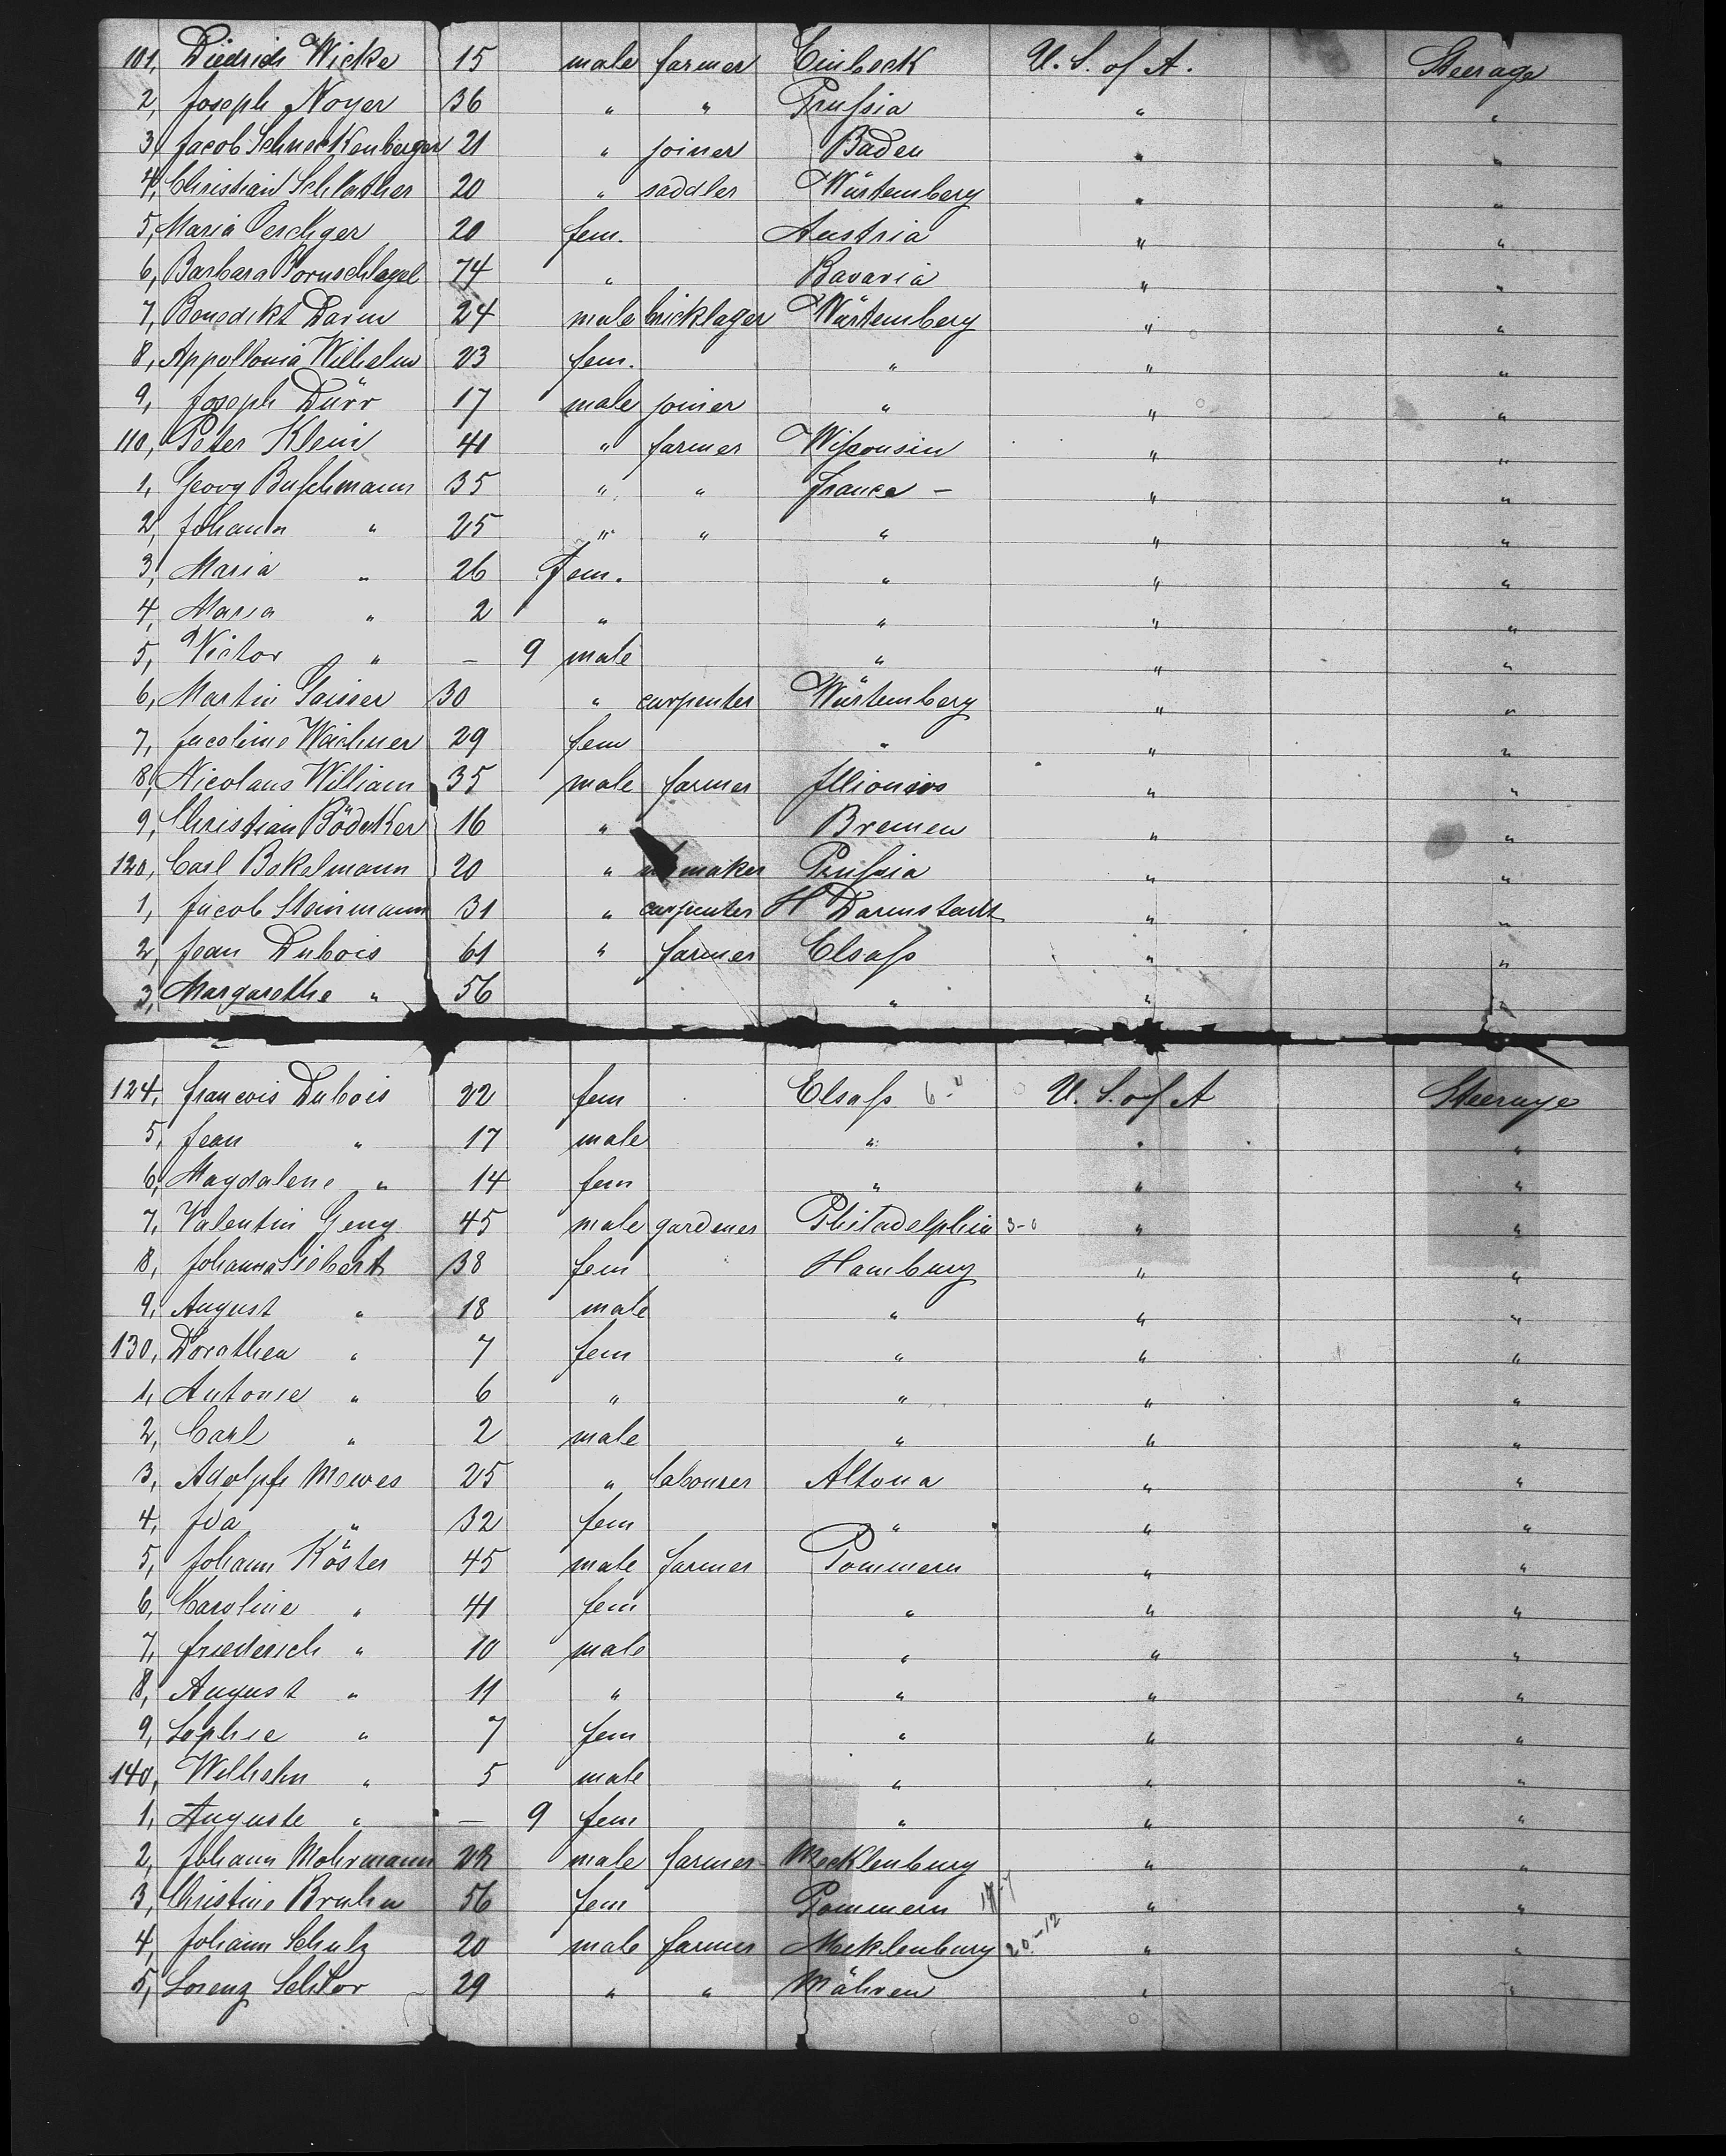 101, Diedrich Wicke 15 male farmer Einbeck U. S. of A. Steerage
2, Joseph Noyer 36 " " Prußia " "
3, Jacob Schneckenberger 21 " joiner Baden " "
4, Christian Schlather 20 " saddler Würtemberg " "
5, Maria Oeschger 20 fem. Austria " "
6, Barbara Pornschlegel 74 " Bavaria " "
7, Benedikt Darm 24 male bricklager Würtemberg " "
8, Appollonia Wilhelm 23 fem. " " "
9, Joseph Dürr 17 male joiner " " "
110, Peter Klein 41 " farmer Wisconsin " "
1, Georg Buschmann 35 " " France - " "
2, Johann " 25 " " " " "
3, Maria " 26 fem. " " "
4, Maria " 2 " " " "
5, Victor " - 9 male " " "
6, Martin Gaisser 30 " carpenter Würtemberg " "
7, Jacobine Waichner 29 fem " " "
8, Nicolaus William 35 male farmer Jllionios " "
9, Christian Bödeker 16 " Bremen " "
120, Carl Bokelmann 20 " maker Prußia " "
1, Jacob Steinmann 31 " carpenter H Darmstadt " "
2, Jean Dubois 61 " farmer Elsaß " "
3, Margarethe " 56 " " "
124, Francois Dubois 22 fem Elsaß U. S. of A Steerage
5, Jean " 17 male " " "
6, Magdalene " 14 fem " " "
7, Valentin Geng 45 male gardener Philadelphia 3-0 " "
8, Johanna Siebert 38 fem Hamburg " "
9, August " 18 male " " "
130, Dorathea " 7 fem " " "
1, Antonie " 6 " " " "
2, Carl " 2 male " " "
3, Adolph Mewes 25 " labourer Altona " "
4, Ida " 32 fem " " "
5, Johann Köster 45 male farmer Pommern " "
6, Karoline " 41 fem " " "
7, Friederich " 10 male " " "
8, August " 11 " " " "
9, Sophie " 7 fem " " "
140, Wilhelm " 5 male " " "
1, Auguste " - 9 fem " " "
2, Johann Mohrmann male farmer Mecklenburg " "
3, Christine Bruhn 56 fem Pommern " "
4, Johann Schulz 20 male farmer Mecklenburg 20-12 " "
5, Lorenz 29 " " Mähren " "